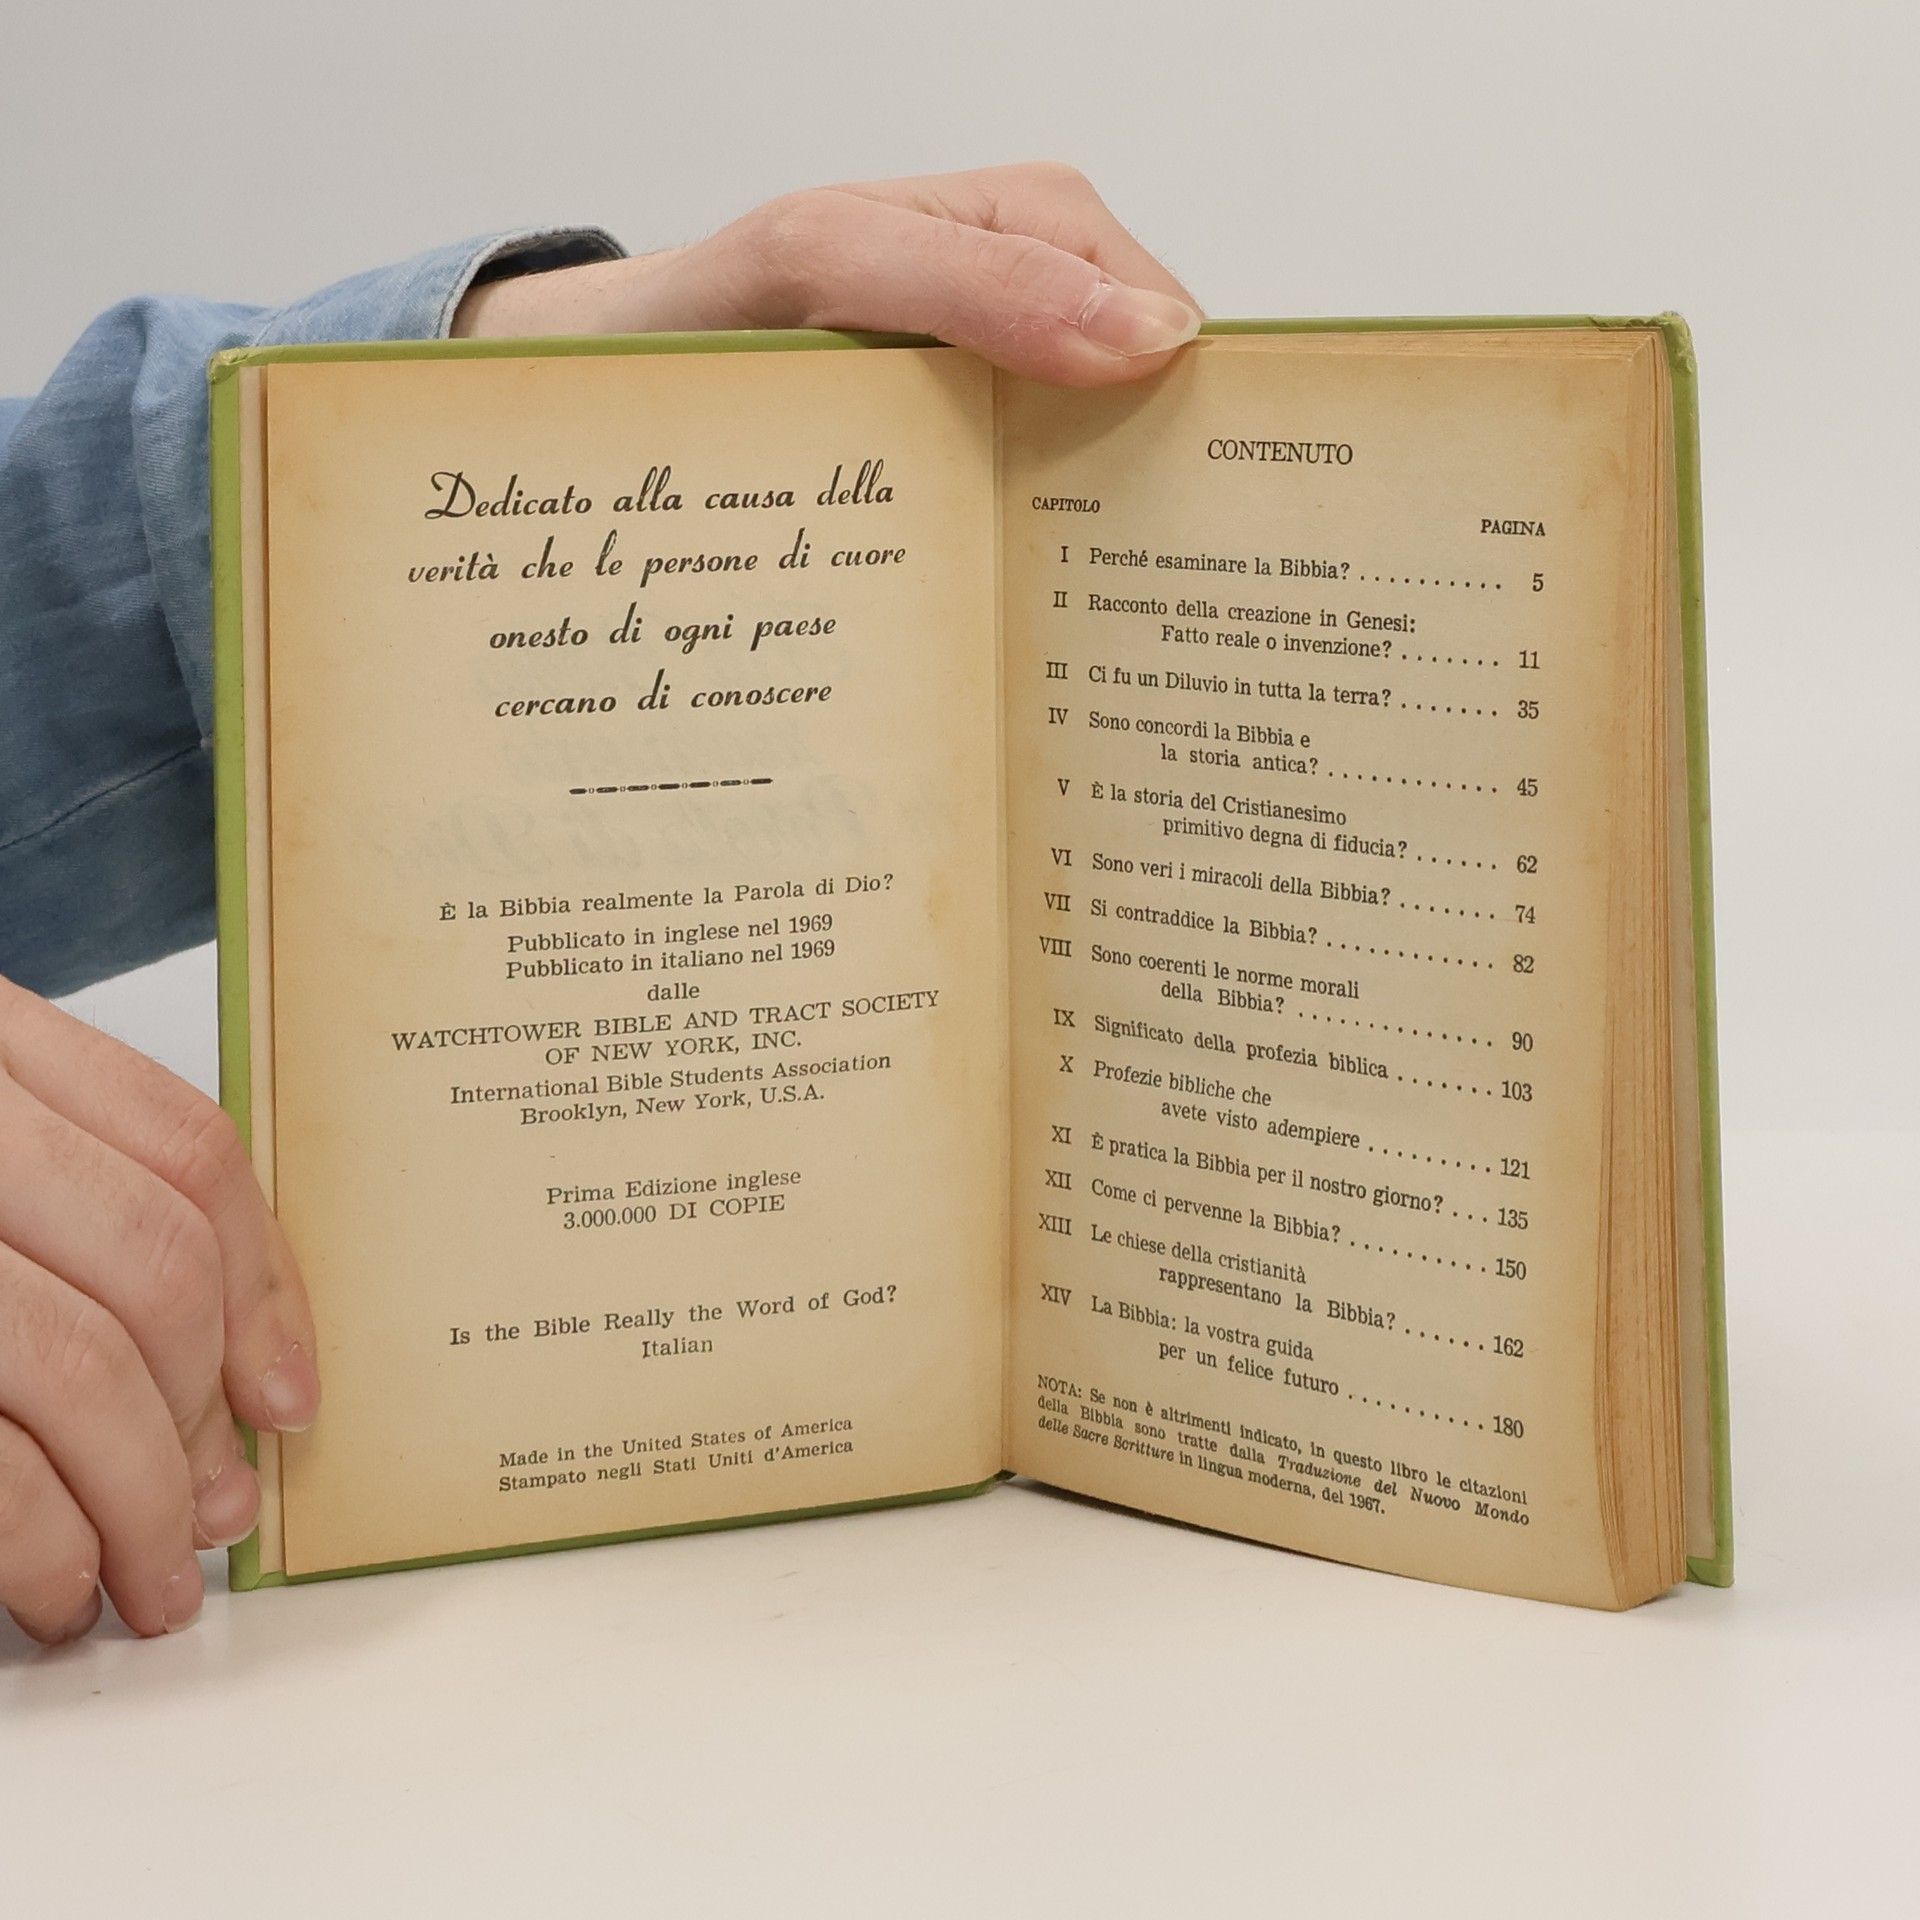 Dedicato alla causa della
verità che le persone di cuore
onesto di ogni paese
cercano di conoscere
È la Bibbia realmente la Parola di Dio?
Pubblicato in inglese nel 1969
Pubblicato in italiano nel 1969
dalle
WATCHTOWER BIBLE AND TRACT SOCIETY
OF NEW YORK, INC.
International Bible Students Association
Brooklyn, New York, U.S.A.
Prima Edizione inglese
3.000.000 DI COPIE
Is the Bible Really the Word of God?
Italian
Made in the United States of America
Stampato negli Stati Uniti d'America
CONTENUTO
CAPITOLO PAGINA
I Perché esaminare la Bibbia? .......... 5
II Racconto della creazione in Genesi:
Fatto reale o invenzione? ....... 11
III Ci fu un Diluvio in tutta la terra? ....... 35
IV Sono concordi la Bibbia e
la storia antica? ............ 45
V È la storia del Cristianesimo
primitivo degna di fiducia? ...... 62
VI Sono veri i miracoli della Bibbia? ....... 74
VII Si contraddice la Bibbia? ............ 82
VIII Sono coerenti le norme morali
della Bibbia? .............. 90
IX Significato della profezia biblica ....... 103
X Profezie bibliche che
avete visto adempiere ......... 121
XI È pratica la Bibbia per il nostro giorno? ... 135
XII Come ci pervenne la Bibbia? .......... 150
XIII Le chiese della cristianità
rappresentano la Bibbia? ...... 162
XIV La Bibbia: la vostra guida
per un felice futuro .......... 180
NOTA: Se non è altrimenti indicato, in questo libro le citazioni
della Bibbia sono tratte dalla Traduzione del Nuovo Mondo
delle Sacre Scritture in lingua moderna, del 1967.